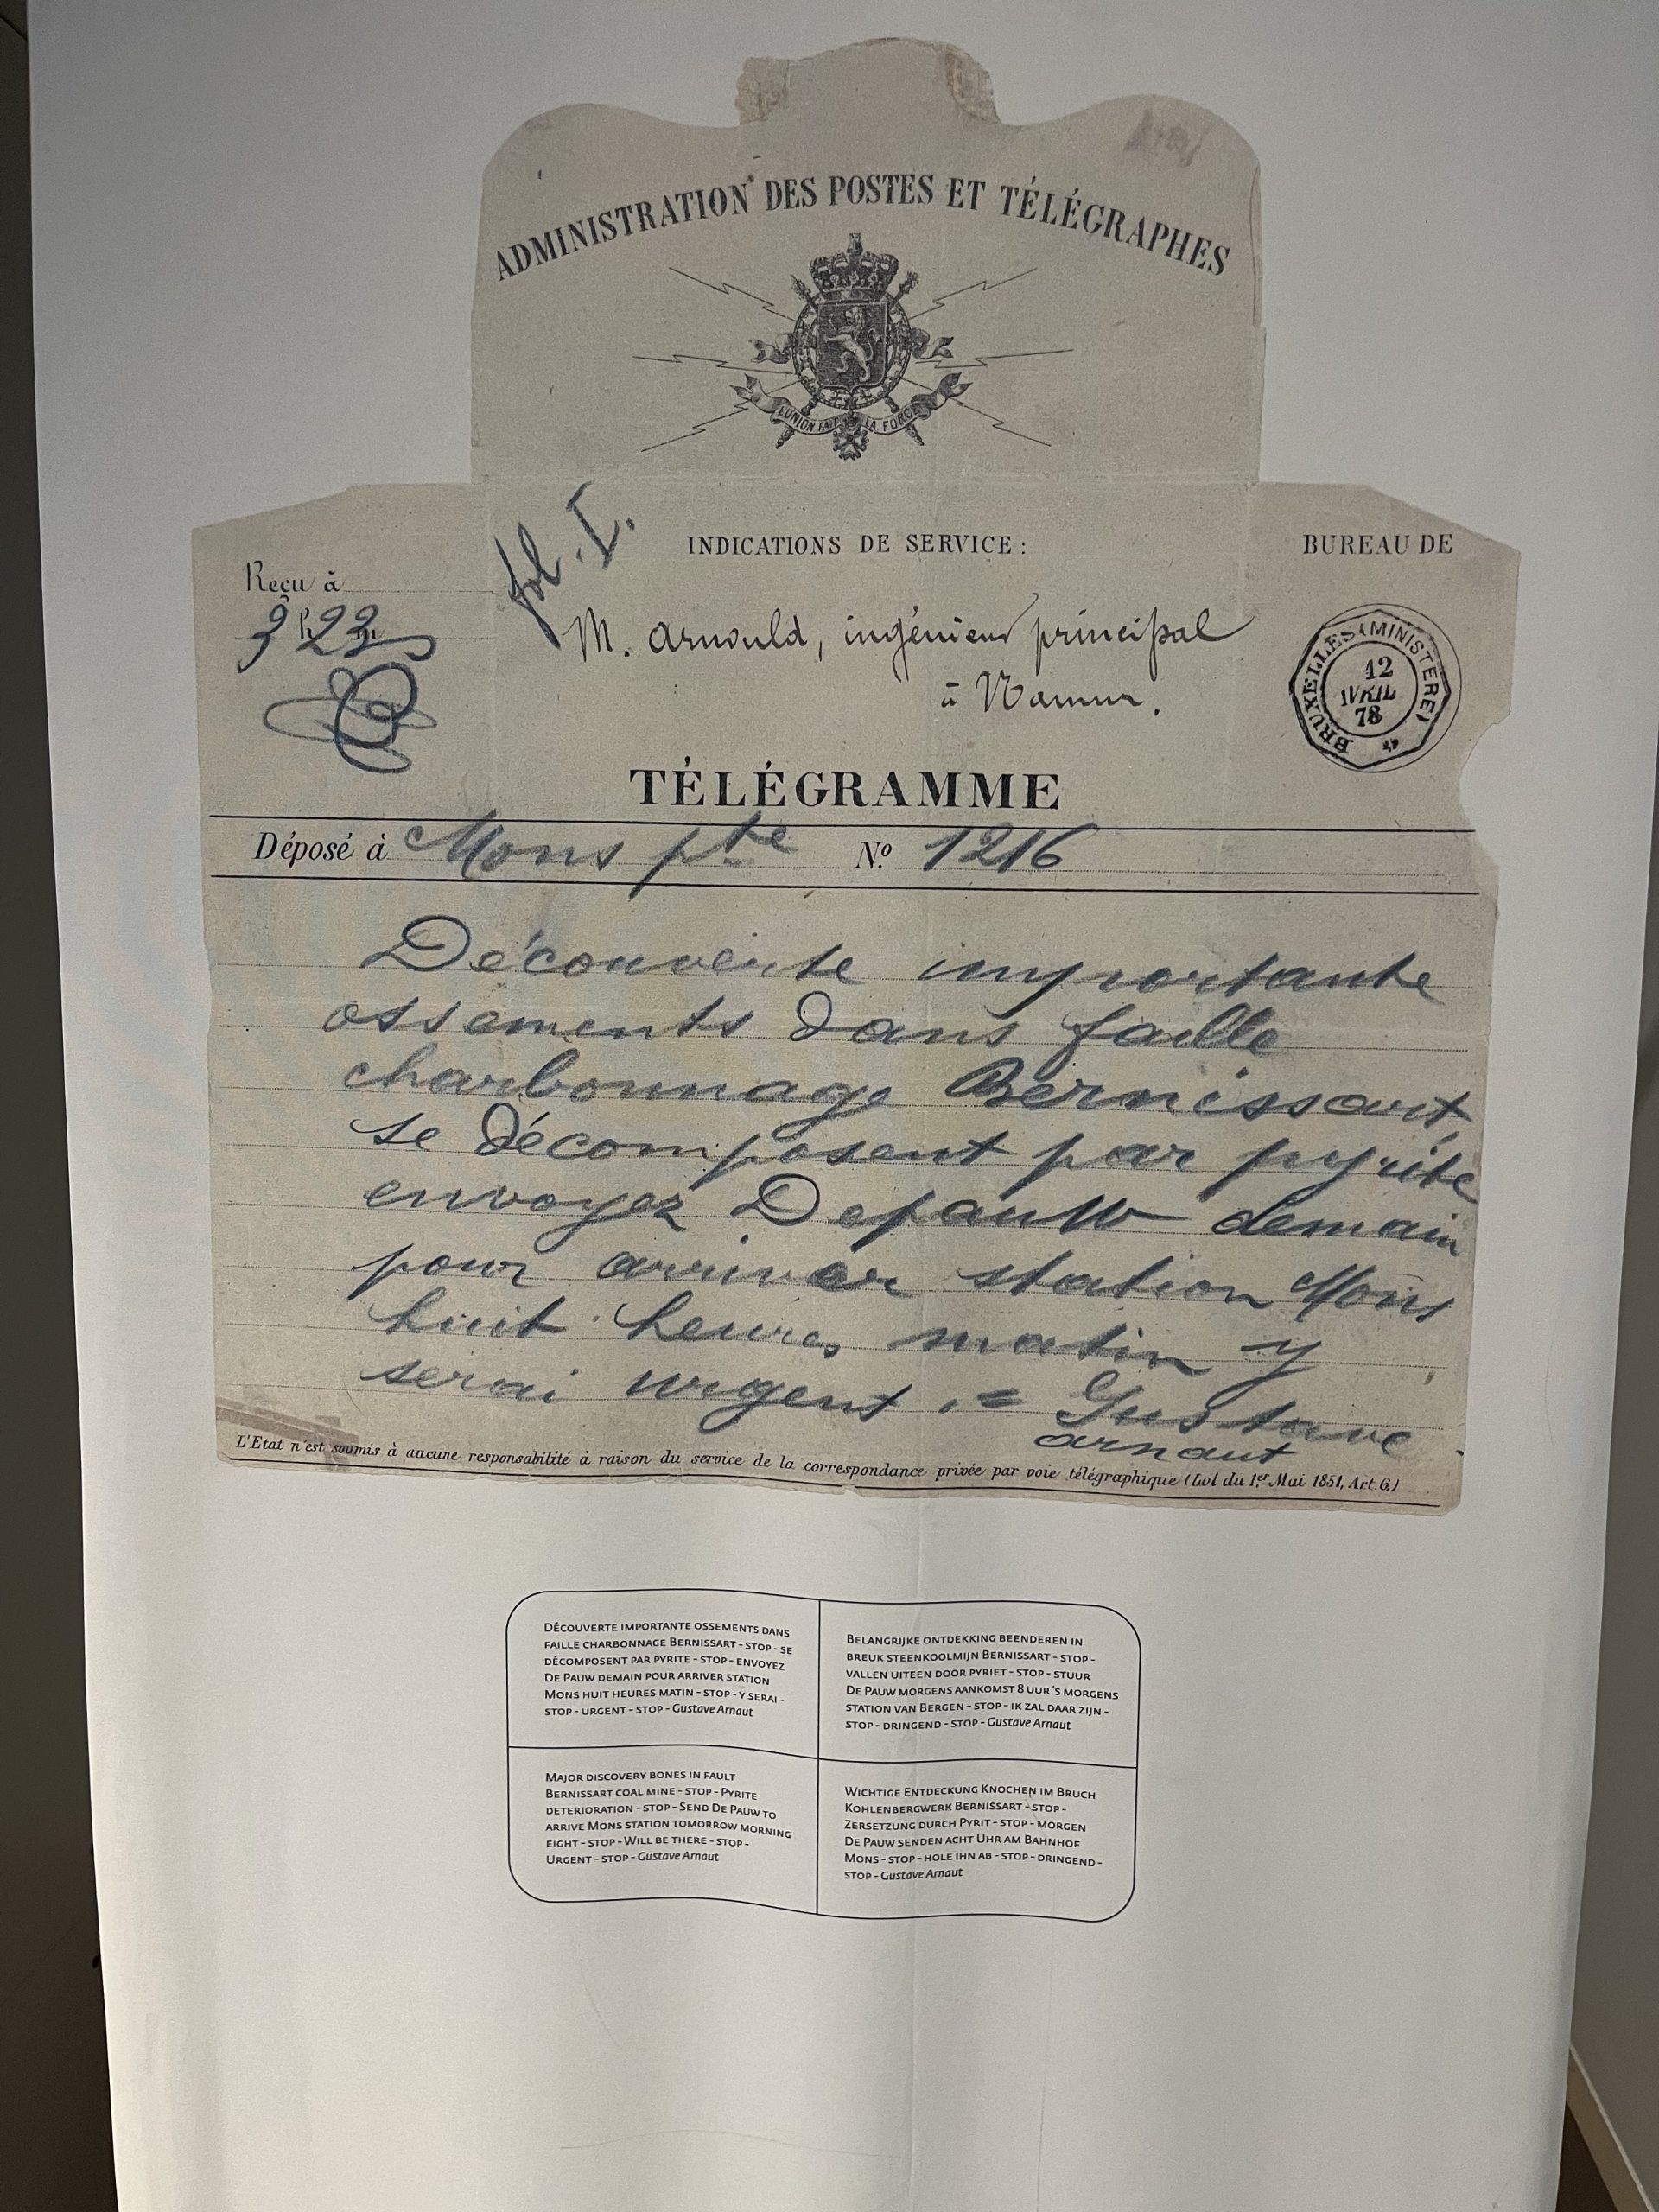 ADMINISTRATION DES POSTES ET TÉLÉGRAPHES
L'UNION FAIT LA FORCE
fol. I.
INDICATIONS DE SERVICE:
BUREAU DE
Reçu à
3 h 23 m
M. Arnould, ingénieur principal
à Namur.
BRUXELLES (MINISTÈRE)
12
AVRIL
78
TÉLÉGRAMME
Déposé à Mons pte No. 1216
Découverte importante
ossements dans faille
charbonnage Bernissart
se décomposent par pyrite
envoyez Depauw demain
pour arriver station Mons
huit heures matin y
serai urgent. = Gustave
arnaut
L'Etat n'est soumis à aucune responsabilité à raison du service de la correspondance privée par voie télégraphique (Loi du 1er Mai 1851, Art. 6.)
DÉCOUVERTE IMPORTANTE OSSEMENTS DANS
FAILLE CHARBONNAGE BERNISSART - STOP - SE
DÉCOMPOSENT PAR PYRITE - STOP - ENVOYEZ
DE PAUW DEMAIN POUR ARRIVER STATION
MONS HUIT HEURES MATIN - STOP - Y SERAI -
STOP - URGENT - STOP - Gustave Arnaut
BELANGRIJKE ONTDEKKING BEENDEREN IN
BREUK STEENKOOLMIJN BERNISSART - STOP -
VALLEN UITEEN DOOR PYRIET - STOP - STUUR
DE PAUW MORGENS AANKOMST 8 UUR 'S MORGENS
STATION VAN BERGEN - STOP - IK ZAL DAAR ZIJN -
STOP - DRINGEND - STOP - Gustave Arnaut
MAJOR DISCOVERY BONES IN FAULT
BERNISSART COAL MINE - STOP - PYRITE
DETERIORATION - STOP - SEND DE PAUW TO
ARRIVE MONS STATION TOMORROW MORNING
EIGHT - STOP - WILL BE THERE - STOP -
URGENT - STOP - Gustave Arnaut
WICHTIGE ENTDECKUNG KNOCHEN IM BRUCH
KOHLENBERGWERK BERNISSART - STOP -
ZERSETZUNG DURCH PYRIT - STOP - MORGEN
DE PAUW SENDEN ACHT UHR AM BAHNHOF
MONS - STOP - HOLE IHN AB - STOP - DRINGEND -
STOP - Gustave Arnaut